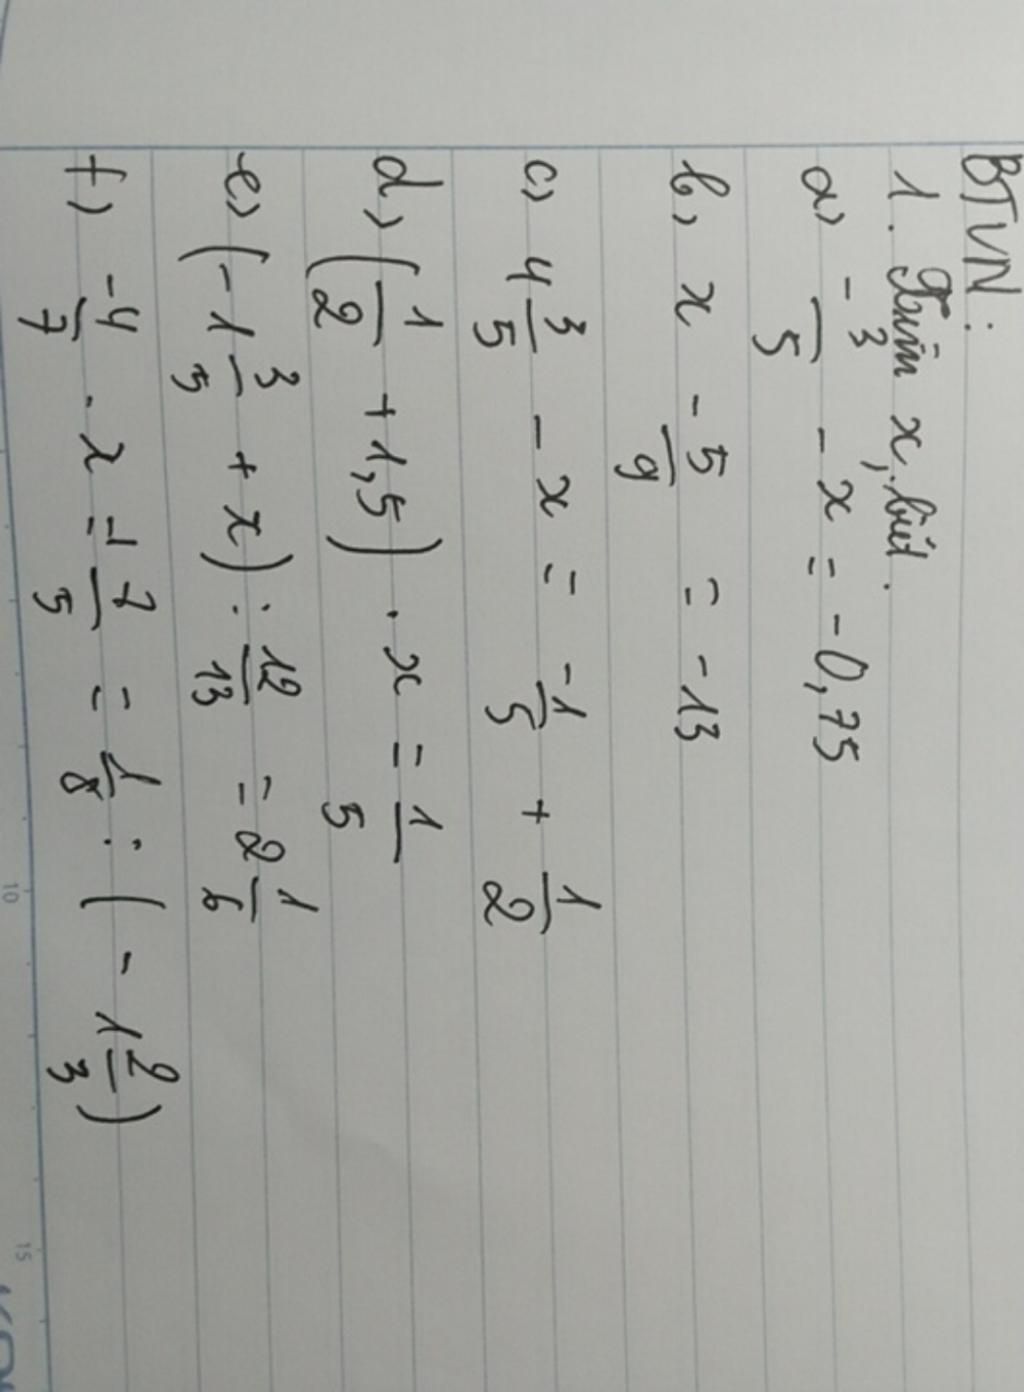 BTVN:
1. Tìm x, biết.
a) -3/5 - x = -0,75
b) x - 5/9 = -13
c) 4 3/5 - x = -1/5 + 1/2
d) (1/2 + 1,5) . x = 1/5
e) (-1 3/5 + x) : 12/13 = 2 1/6
f) -4/7 . x = -1 7/5 = 1/8 : (-1 2/3)
10
15